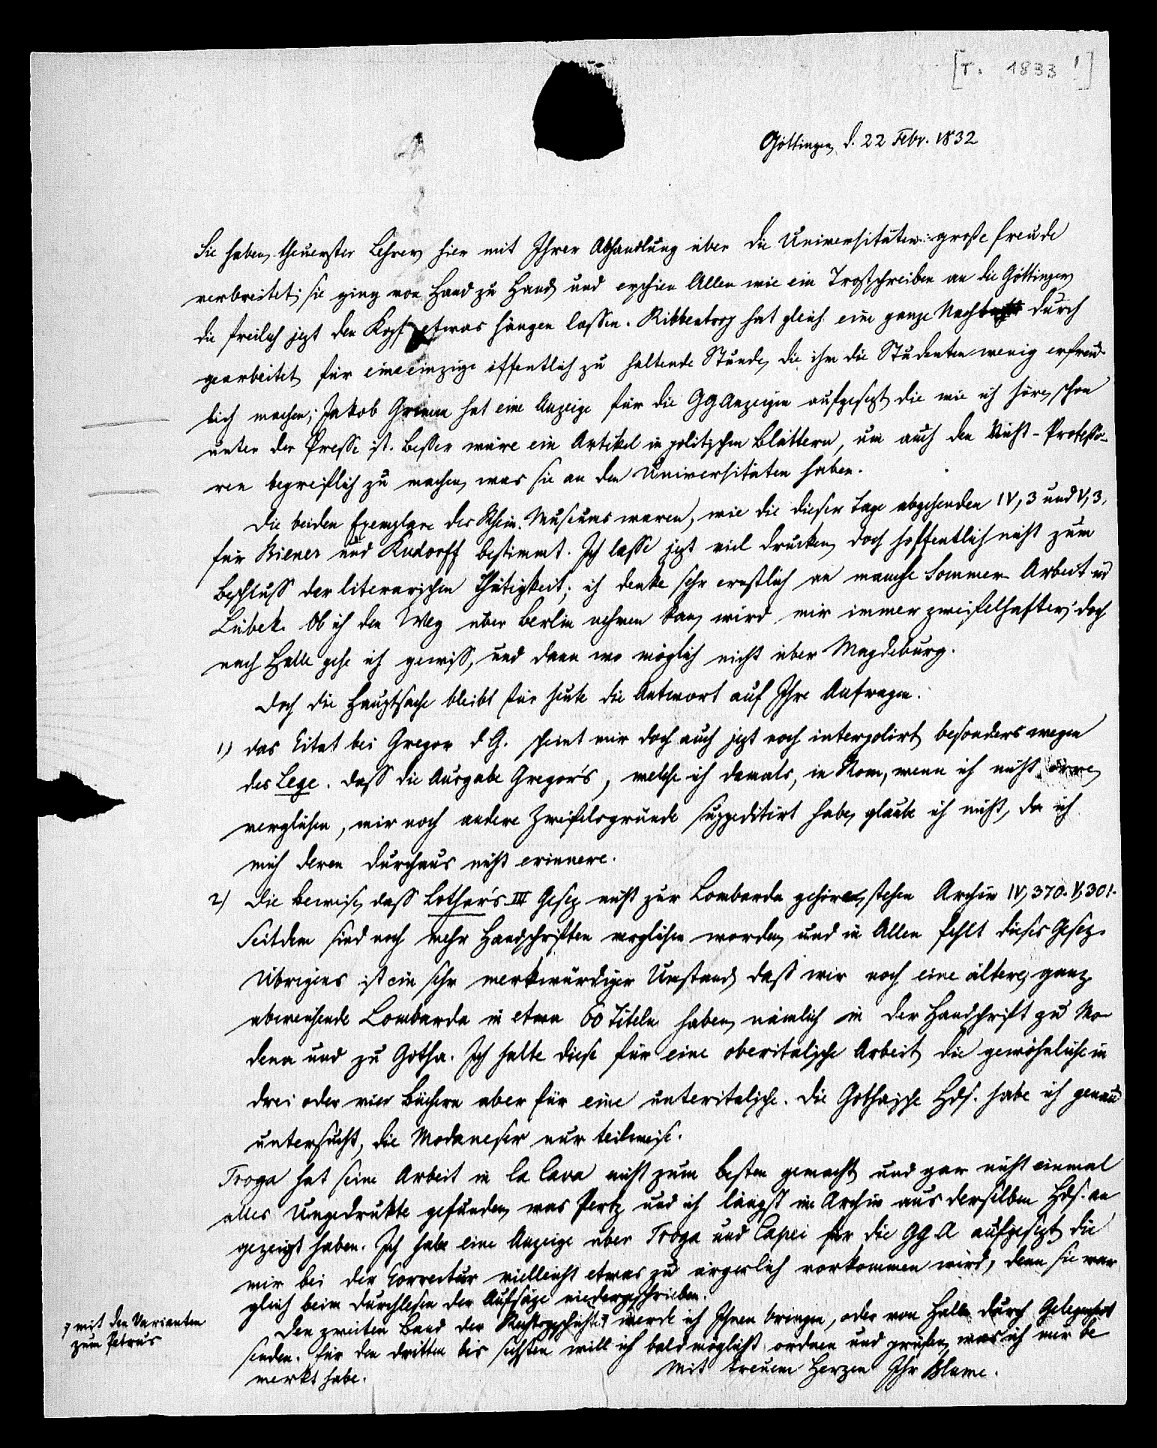 [T. 1833!]
Göttingen, d. 22 Febr. 1832
Sie haben, theuerster Lehrer, hier mit Ihrer Abhandlung über die Universitäten große Freude
verbreitet; sie ging von Hand zu Hand, und erschien Allen wie ein Trostschreiben an die Göttinger,
die freilich jezt den Kopf etwas hängen lassen. Ribbentrop hat gleich eine ganze Nacht durch
gearbeitet für eine einzige öffentlich zu haltende Stunde, die ihm die Studenten wenig erfreu-
lich machen; Jakob Grimm hat eine Anzeige für die GGAnzeigen aufgesezt, die wie ich höre, schon
unter der Presse ist. Besser wäre ein Artikel in politischen Blättern, um auch den Nicht-Professo-
ren begreiflich zu machen, was sie an den Universitäten haben.
Die beiden Exemplare des Rhein. Museums waren, wie die dieser Tage abgehenden IV, 3 und V, 3,
für Biener und Rudorff bestimmt. Ich lasse jezt viel drucken, doch hoffentlich nicht zum
Beschluss der literarischen Thätigkeit; ich denke sehr ernstlich an manche Sommer-Arbeit in
Lübek. Ob ich den Weg über Berlin nehmen kan, wird mir immer zweifelhafter; doch
nach Halle gehe ich gewiss, und dann wo möglich nicht über Magdeburg.
Doch die Hauptsache bleibt für heute die Antwort auf Ihre Anfragen.
1) das Citat bei Gregor d. G. scheint mir doch auch jezt noch interpolirt besonders wegen
des Lege. Dass die Ausgabe Gregor's, welche ich damals, in Rom, wenn ich nicht irre,
verglichen, mir noch andere Zweifelsgründe suppeditirt habe, glaube ich nicht, da ich
mich deren durchaus nicht erinnere.
2) Die Beweise, dass Lothar's III Gesez nicht zur Lombarda gehöre, stehen Archiv IV, 370. V, 301.
Seitdem sind noch mehr Handschriften verglichen worden, und in Allen fehlt dieses Gesez.
Übrigens ist ein sehr merkwürdiger Umstand, dass wir noch eine ältere, ganz
abweichende Lombarda in etwa 60 Titeln haben, nämlich in der Handschrift zu Mo-
dena und zu Gotha. Ich halte diese für eine oberitalische Arbeit, die gewöhnliche in
drei oder vier Büchern aber für eine unteritalische. Die Gothaische Hds. habe ich genau
untersucht, die Modaneser nur teilweise.
Troya hat seine Arbeit in La Cava nicht zum besten gemacht, und gar nicht einmal
alles Ungedrukte gefunden, was Pertz und ich längst im Archiv aus derselben Hds. an
gezeigt haben. Ich habe eine Anzeige über Troya und Capei für die GGA aufgesezt, die
mir bei der Correctur vielleicht etwas zu ärgerlich vorkommen wird, denn sie war
gleich beim Durchlesen der Aufsäze niedergeschrieben.
Den zweiten Band der Rechtsgeschichte werde ich Ihnen bringen, oder von Halle durch Gelegenheit
senden. Für den dritten bis sechsten will ich bald möglichst ordnen und prüfen, was ich mir be
merkt habe.
Mit treuem Herzen Ihr Blume.
mit den Varianten
zum Petrus